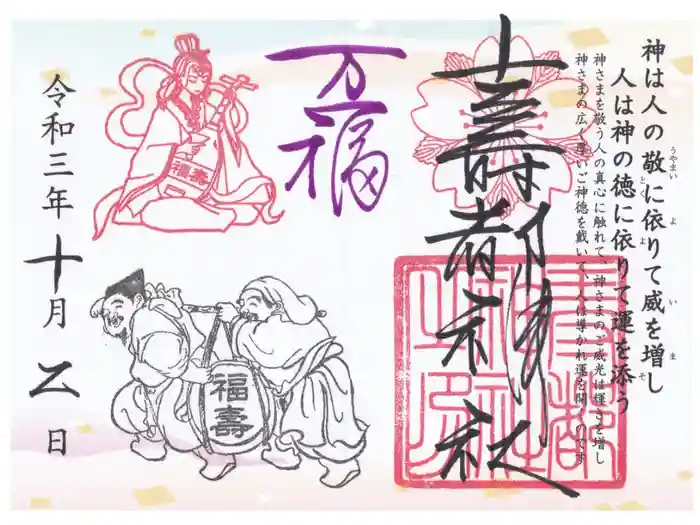 神は人の敬に依りて威を増し
人は神の徳に依りて運を添う
うやまい よ い ま
とく よ そ
神さまを敬う人の真心に触れて、神さまのご威光は輝きを増し
神さまの広く厚いご神徳を戴いて、人は導かれ運を開くのです
壽都神社
万福
福壽
福壽
令和三年十月乙日